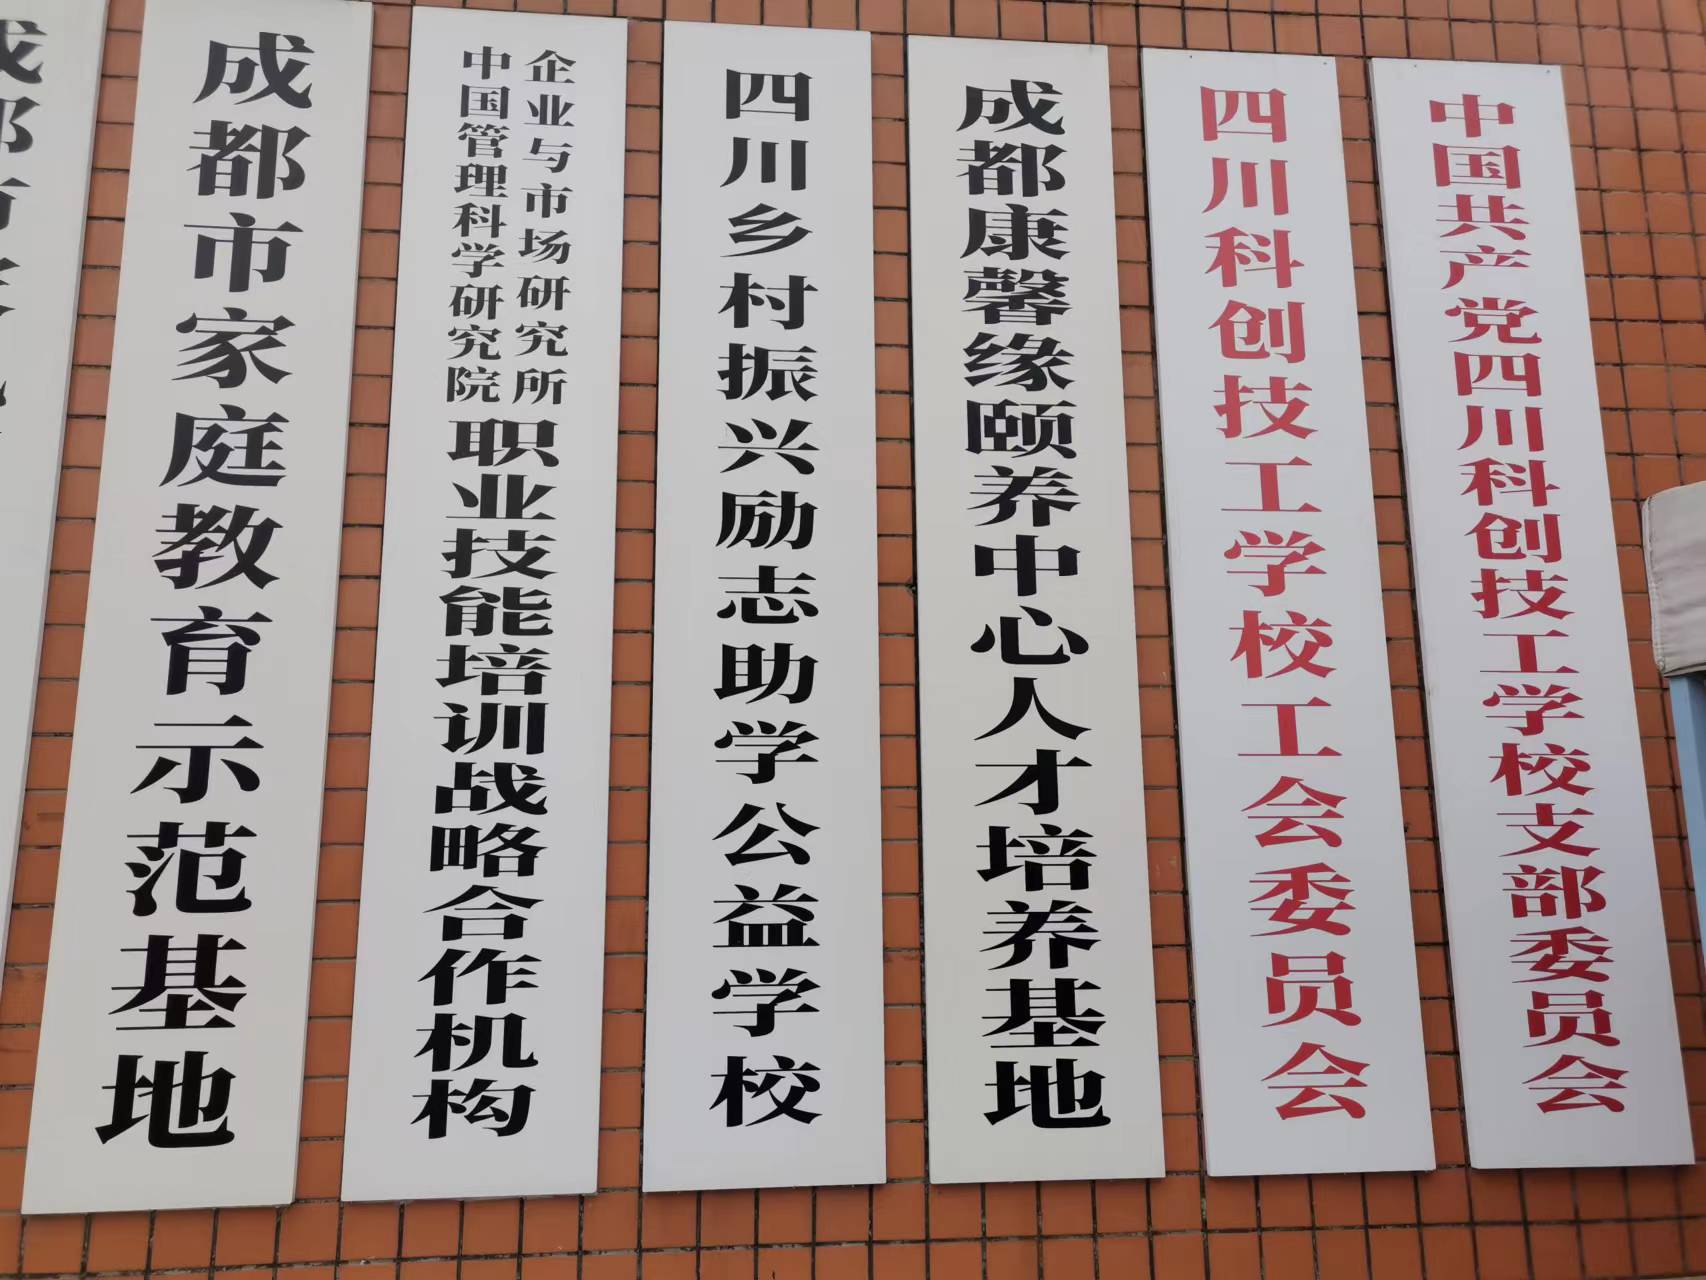 中国共产党四川科创技工学校支部委员会
四川科创技工学校工会委员会
成都康馨缘颐养中心人才培养基地
四川乡村振兴励志助学公益学校
企业与市场研究所
中国管理科学研究院
职业技能培训战略合作机构
成都市家庭教育示范基地
成都市